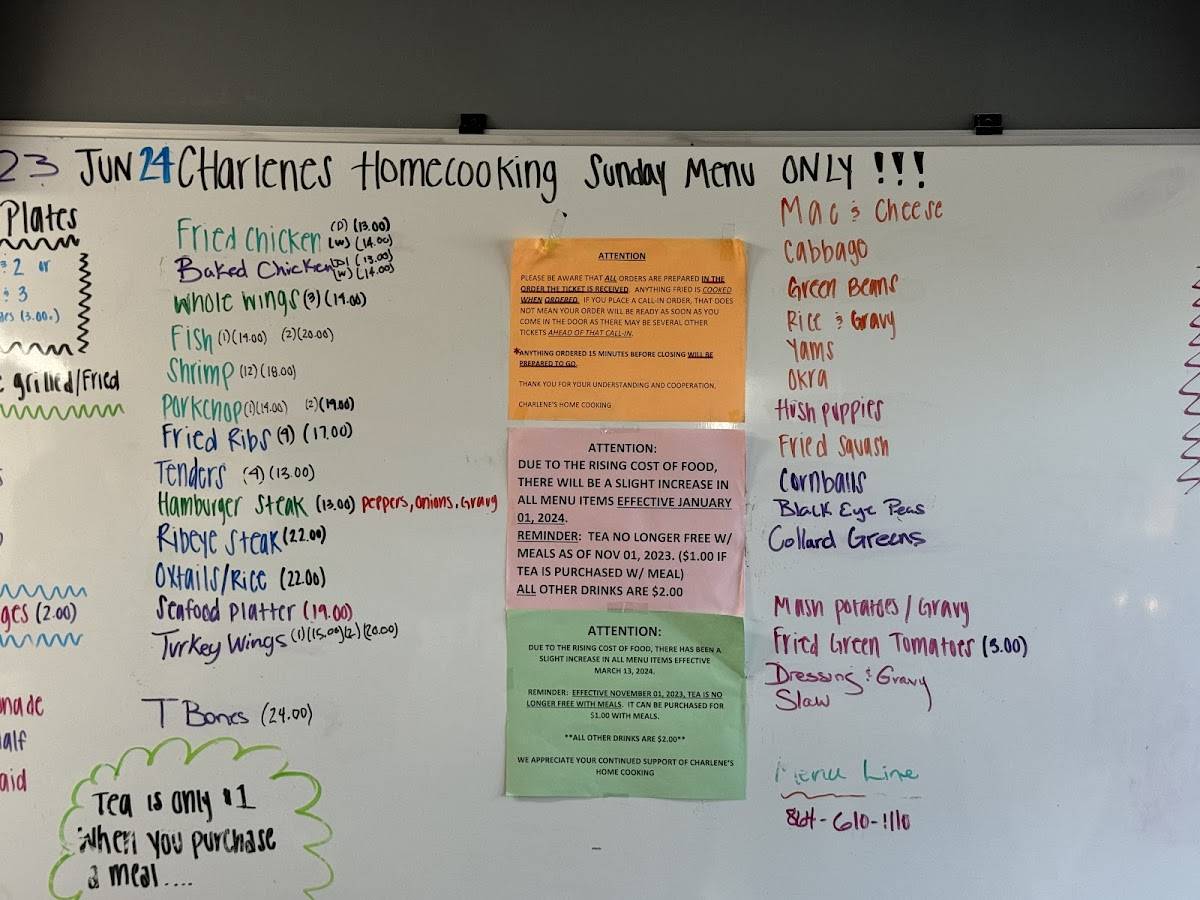 23 JUN 24 CHarlenes Homecooking Sunday Menu ONLY !!!
Plates
& 2 or
& 3
(3.00)
grilled/Fried
ges (2.00)
nade
alf
aid
Fried Chicken (D) (13.00)
(W) (14.00)
Baked Chicken (D) (13.00)
(W) (14.00)
Whole Wings (3) (14.00)
Fish (1) (14.00) (2) (20.00)
Shrimp (12) (18.00)
Porkchop (1) (14.00) (2) (19.00)
Fried Ribs (4) (17.00)
Tenders (4) (13.00)
Hamburger Steak (13.00) Peppers, Onions, Gravy
Ribeye Steak (22.00)
Oxtails/Rice (22.00)
Seafood Platter (19.00)
Turkey Wings (1) (15.00) (2) (20.00)
T Bones (24.00)
Tea is only $1
When you purchase
a meal....
ATTENTION
PLEASE BE AWARE THAT ALL ORDERS ARE PREPARED IN THE
ORDER THE TICKET IS RECEIVED. ANYTHING FRIED IS COOKED
WHEN ORDERED. IF YOU PLACE A CALL-IN ORDER, THAT DOES
NOT MEAN YOUR ORDER WILL BE READY AS SOON AS YOU
COME IN THE DOOR AS THERE MAY BE SEVERAL OTHER
TICKETS AHEAD OF THAT CALL-IN.
*ANYTHING ORDERED 15 MINUTES BEFORE CLOSING WILL BE
PREPARED TO GO.
THANK YOU FOR YOUR UNDERSTANDING AND COOPERATION,
CHARLENE'S HOME COOKING
ATTENTION:
DUE TO THE RISING COST OF FOOD,
THERE WILL BE A SLIGHT INCREASE IN
ALL MENU ITEMS EFFECTIVE JANUARY
01, 2024.
REMINDER: TEA NO LONGER FREE W/
MEALS AS OF NOV 01, 2023. ($1.00 IF
TEA IS PURCHASED W/ MEAL)
ALL OTHER DRINKS ARE $2.00
ATTENTION:
DUE TO THE RISING COST OF FOOD, THERE HAS BEEN A
SLIGHT INCREASE IN ALL MENU ITEMS EFFECTIVE
MARCH 13, 2024.
REMINDER: EFFECTIVE NOVEMBER 01, 2023, TEA IS NO
LONGER FREE WITH MEALS. IT CAN BE PURCHASED FOR
$1.00 WITH MEALS.
**ALL OTHER DRINKS ARE $2.00**
WE APPRECIATE YOUR CONTINUED SUPPORT OF CHARLENE'S
HOME COOKING
Mac & Cheese
Cabbage
Green Beans
Rice & Gravy
Yams
Okra
Hush puppies
Fried Squash
Cornballs
Black Eye Peas
Collard Greens
Mash potatoes/Gravy
Fried Green Tomatoes (5.00)
Dressing & Gravy
Slaw
Menu Line
864-610-1110